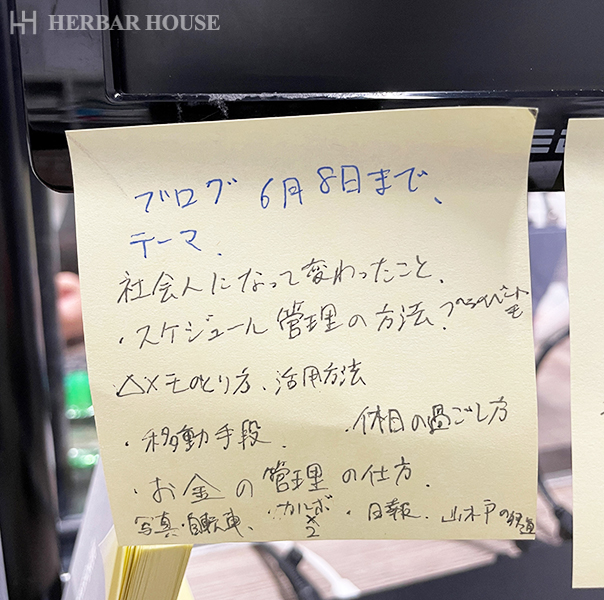 HERBAR HOUSE
ブログ 6月8日まで、
テーマ、
社会人になって変わったこと、
・スケジュール管理の方法?プライベート
も
△メモのとり方、活用方法
・移動手段、 ・休日の過ごし方
・お金の管理の仕方、
写真・自転車、・カルボ ・日報、山木戸の
×
2